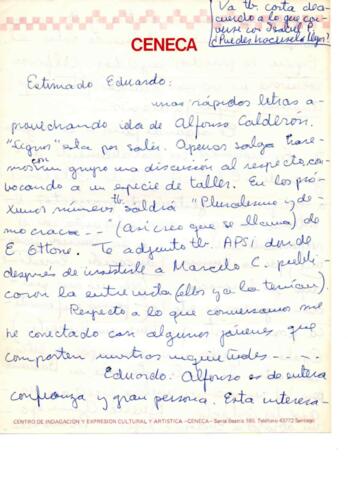 Va tb. carta de a-
cuerdo a lo que con-
versé con Isabel
¿Puedes hacérsela llegar?
CENECA
Estimado Eduardo:
unas rápidas letras a-
provechando ida de Alfonso Calderón.
"Signos" esta por salir. Apenas salga hare-
mos con un grupo una discusión al respecto, con-
vocando a un especie de taller. En los pró-
ximos números tb. saldrá "Pluralismo y de-
mocracia--" (así creo que se llama) de
E. Ottone. Te adjunto tb. APSI donde
después de insistirle a Marcelo C. publi-
caron la entrevista (ellos ya la tenían).
Respecto a lo que conversamos me
he conectado con algunos jóvenes que
comparten nuestras inquietudes - - - -.
Eduardo: Alfonso es de entera
confianza y gran persona. Esta interesa-
CENTRO DE INDAGACION Y EXPRESION CULTURAL Y ARTISTICA -CENECA- Santa Beatriz 160, Teléfono 43772 Santiago